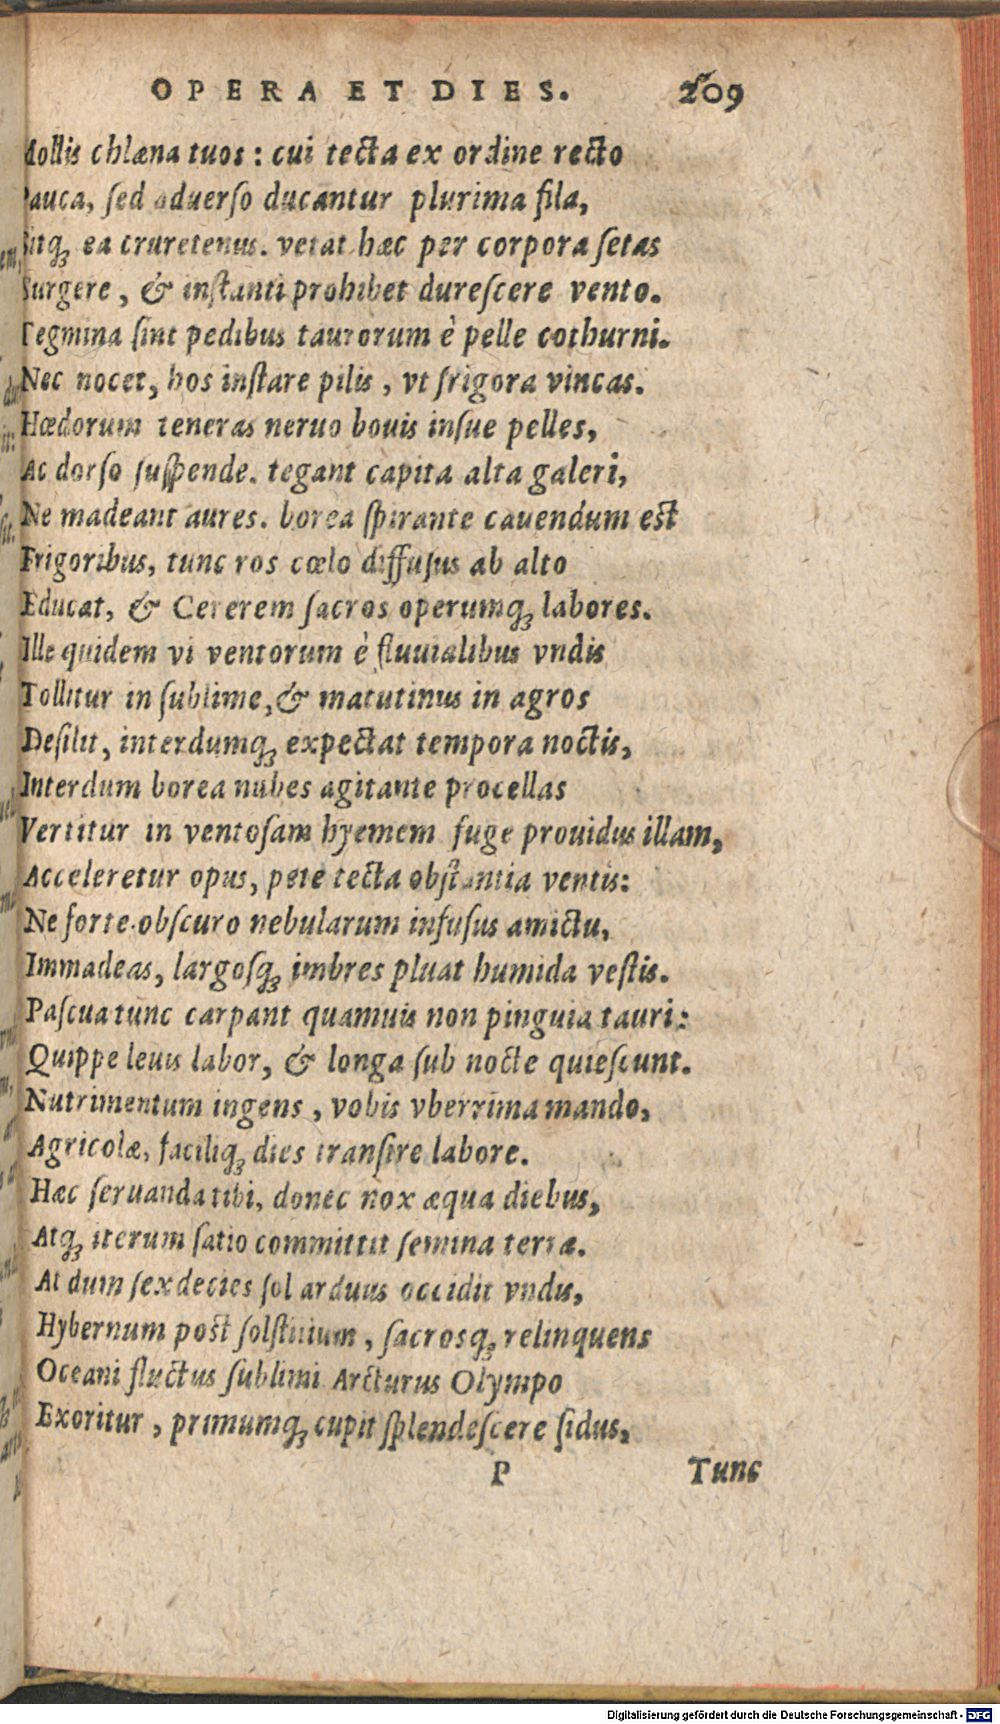 OPERA ET DIES. 209
Mollis chlæna tuos : cui tecta ex ordine recto
Pauca, ſed aduerſo ducantur plurima fila,
Sitq́ꝫ ea cruretenus. vetat hæc per corpora ſetas
Surgere, & inſtanti prohibet dureſcere vento.
Tegmina ſint pedibus taurorum è pelle cothurni.
Nec nocet, hos inſtare pilis, vt frigora vincas.
Hœdorum teneras neruo bouis inſue pelles,
Ac dorſo ſuſpende. tegant capita alta galeri,
Ne madeant aures. borea ſpirante cauendum eſt
Frigoribus, tunc ros cœlo diffuſus ab alto
Educat, & Cererem ſacros operumqꝫ labores.
Ille quidem vi ventorum è fluuialibus vndis
Tollitur in ſublime, & matutinus in agros
Deſilit, interdumqꝫ expectat tempora noctis,
Interdum borea nubes agitante procellas
Vertitur in ventoſam hyemem fuge prouidus illam,
Acceleretur opus, pete tecta obſtantia ventis:
Ne forte obſcuro nebularum infuſus amictu,
Immadeas, largoſqꝫ imbres pluat humida veſtis.
Paſcua tunc carpant quamuis non pinguia tauri:
Quippe leuis labor, & longa ſub nocte quieſcunt.
Nutrimentum ingens, vobis vberrima mando,
Agricolæ, faciliqꝫ dies tranſire labore.
Hæc ſeruanda tibi, donec nox æqua diebus,
Atqꝫ iterum ſatio committit ſemina terræ.
At dum ſexdecies ſol arduus occidit vndis,
Hybernum poſt ſolſtitium, ſacrosqꝫ relinquens
Oceani fluctus ſublimi Arcturus Olympo
Exoritur, primumqꝫ cupit ſplendeſcere ſidus,
P Tunc
Digitalisierung gefördert durch die Deutsche Forschungsgemeinschaft - DFG